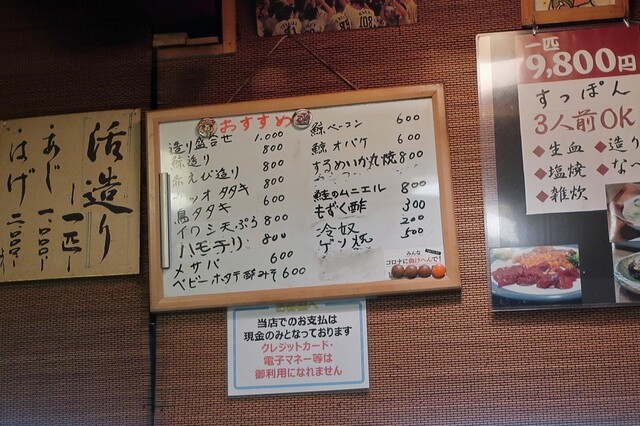 活造り
一匹
あじ 一、〇〇〇
はげ 二、〇〇〇
おすすめ
造り盛合せ 1,000
鯨造り 800
赤えび造り 800
カツオタタキ 800
鳥タタキ 600
イワシ天ぷら 800
ハモチリ 800
メサバ 600
ベビーホタテ酢みそ 600
鯨ベーコン 600
鯨オバケ 600
するめいか丸焼 800
鮭のムニエル 800
もずく酢 300
冷奴 200
ゲソ焼 500
みんな
コロナに負けへんで!
当店でのお支払は
現金のみとなっております
クレジットカード・
電子マネー等は
御利用になれません
一匹
9,800円
すっぽん
3人前OK
◆生血 ◆造り
◆塩焼 ◆なべ
◆雑炊